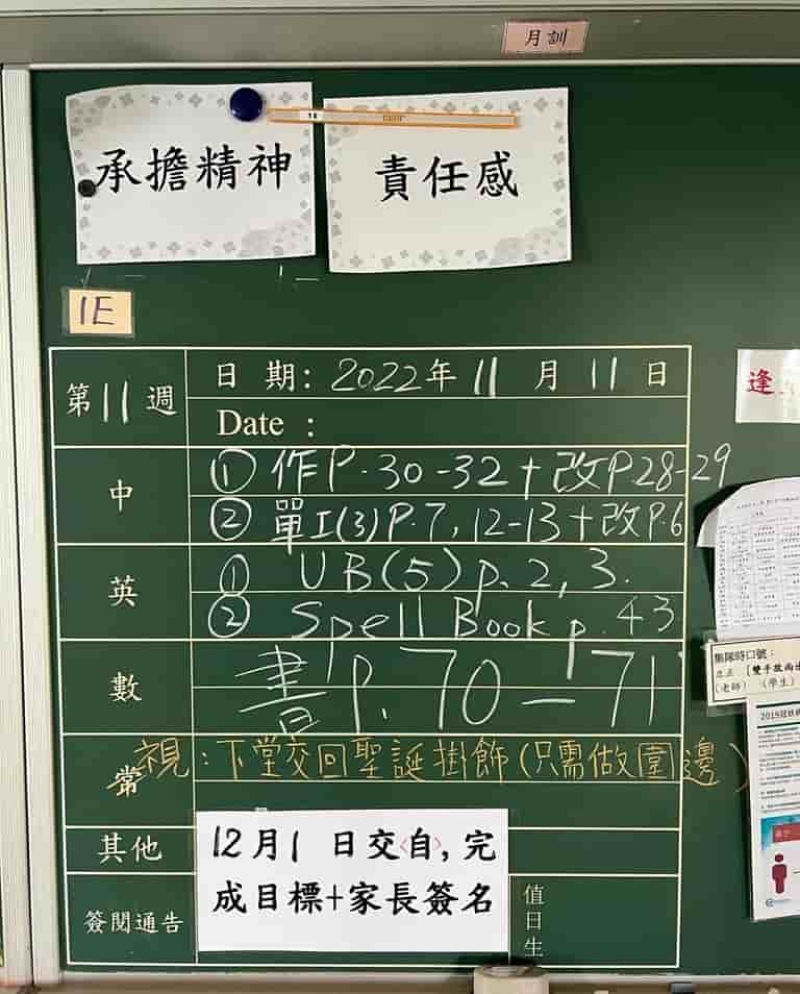 月訓
承擔精神
責任感
1E
第11週
日 期: 2022年 11 月 11 日
Date :
中
① 作P.30-32+改P.28-29
② 單I(3)P.7,12-13+改P.6
英
① UB(5)p.2,3.
② Spell Book p.43
數
書P.70-71
常
視:下堂交回聖誕掛飾(只需做圍邊)
其他
12月1 日交<自>,完
成目標+家長簽名
簽閱通告
值日生
逢
集隊時口號:
(老師) (學生)